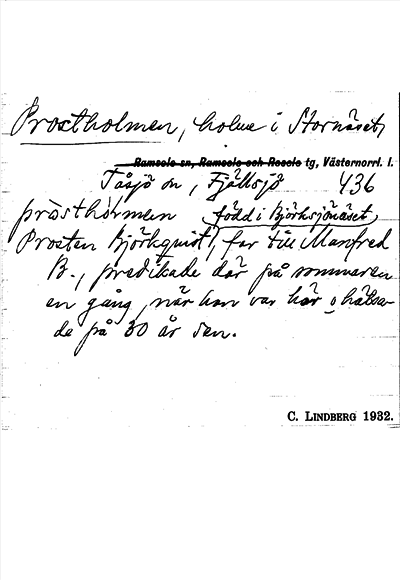 Prostholmen, holme i Stornäset,
Ramsele sn, Ramsele och Resele tg, Västernorrl. l.
Tåsjö sn, Fjällsjö 436
pròsthòrmen född i Björksjönäset,
Prosten Björkquist, far till Manfred
B., predikade där på sommaren
en gång, när han var här o hälsa-
de på 30 år sen.
C. LINDBERG 1932.